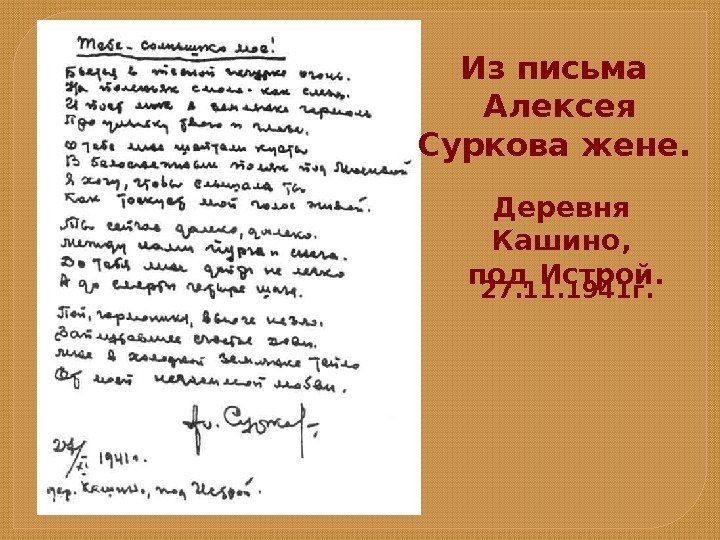 Тебе – солнышко мое!
Бьется в тесной печурке огонь.
На поленьях смола - как слеза.
И поет мне в землянке гармонь
Про улыбку твою и глаза.
О тебе мне шептали кусты
В белоснежных полях под Москвой
Я хочу, чтобы слышала ты
Как тоскует мой голос живой.
Ты сейчас далеко, далеко.
Между нами пурга и снега.
До тебя мне дойти не легко
А до смерти четыре шага.
Пой, гармоника, вьюге назло.
Заплутавшее счастье зови.
Мне в холодной землянке тепло
От моей негасимой любви.
Ал. Сурков
27/XI 1941 г.
дер. Кашино, под Истрой.
Из письма
Алексея
Суркова жене.
Деревня
Кашино,
под Истрой.
27.11.1941г.